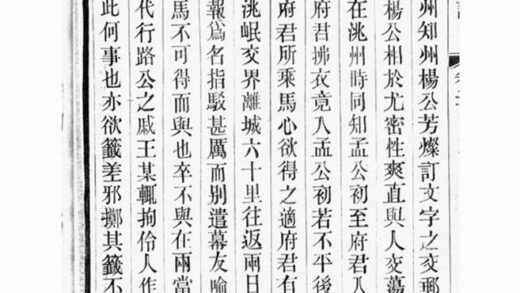 州知州楊公芳燦訂文字之交郵
楊公相於尤密性爽直與人交蕩
在洮州時同知孟公初至府君入
府君拂衣竟入孟公初若不平後
府君所乘馬心欲得之適府君有
洮岷交界離城六十里往返兩日
報爲名指駁甚厲而别遣幕友喻
馬不可得而與也卒不與在兩當
代行路公之戚王某輒拘伶人作
此何事也亦欲籤差邪擲其籤不